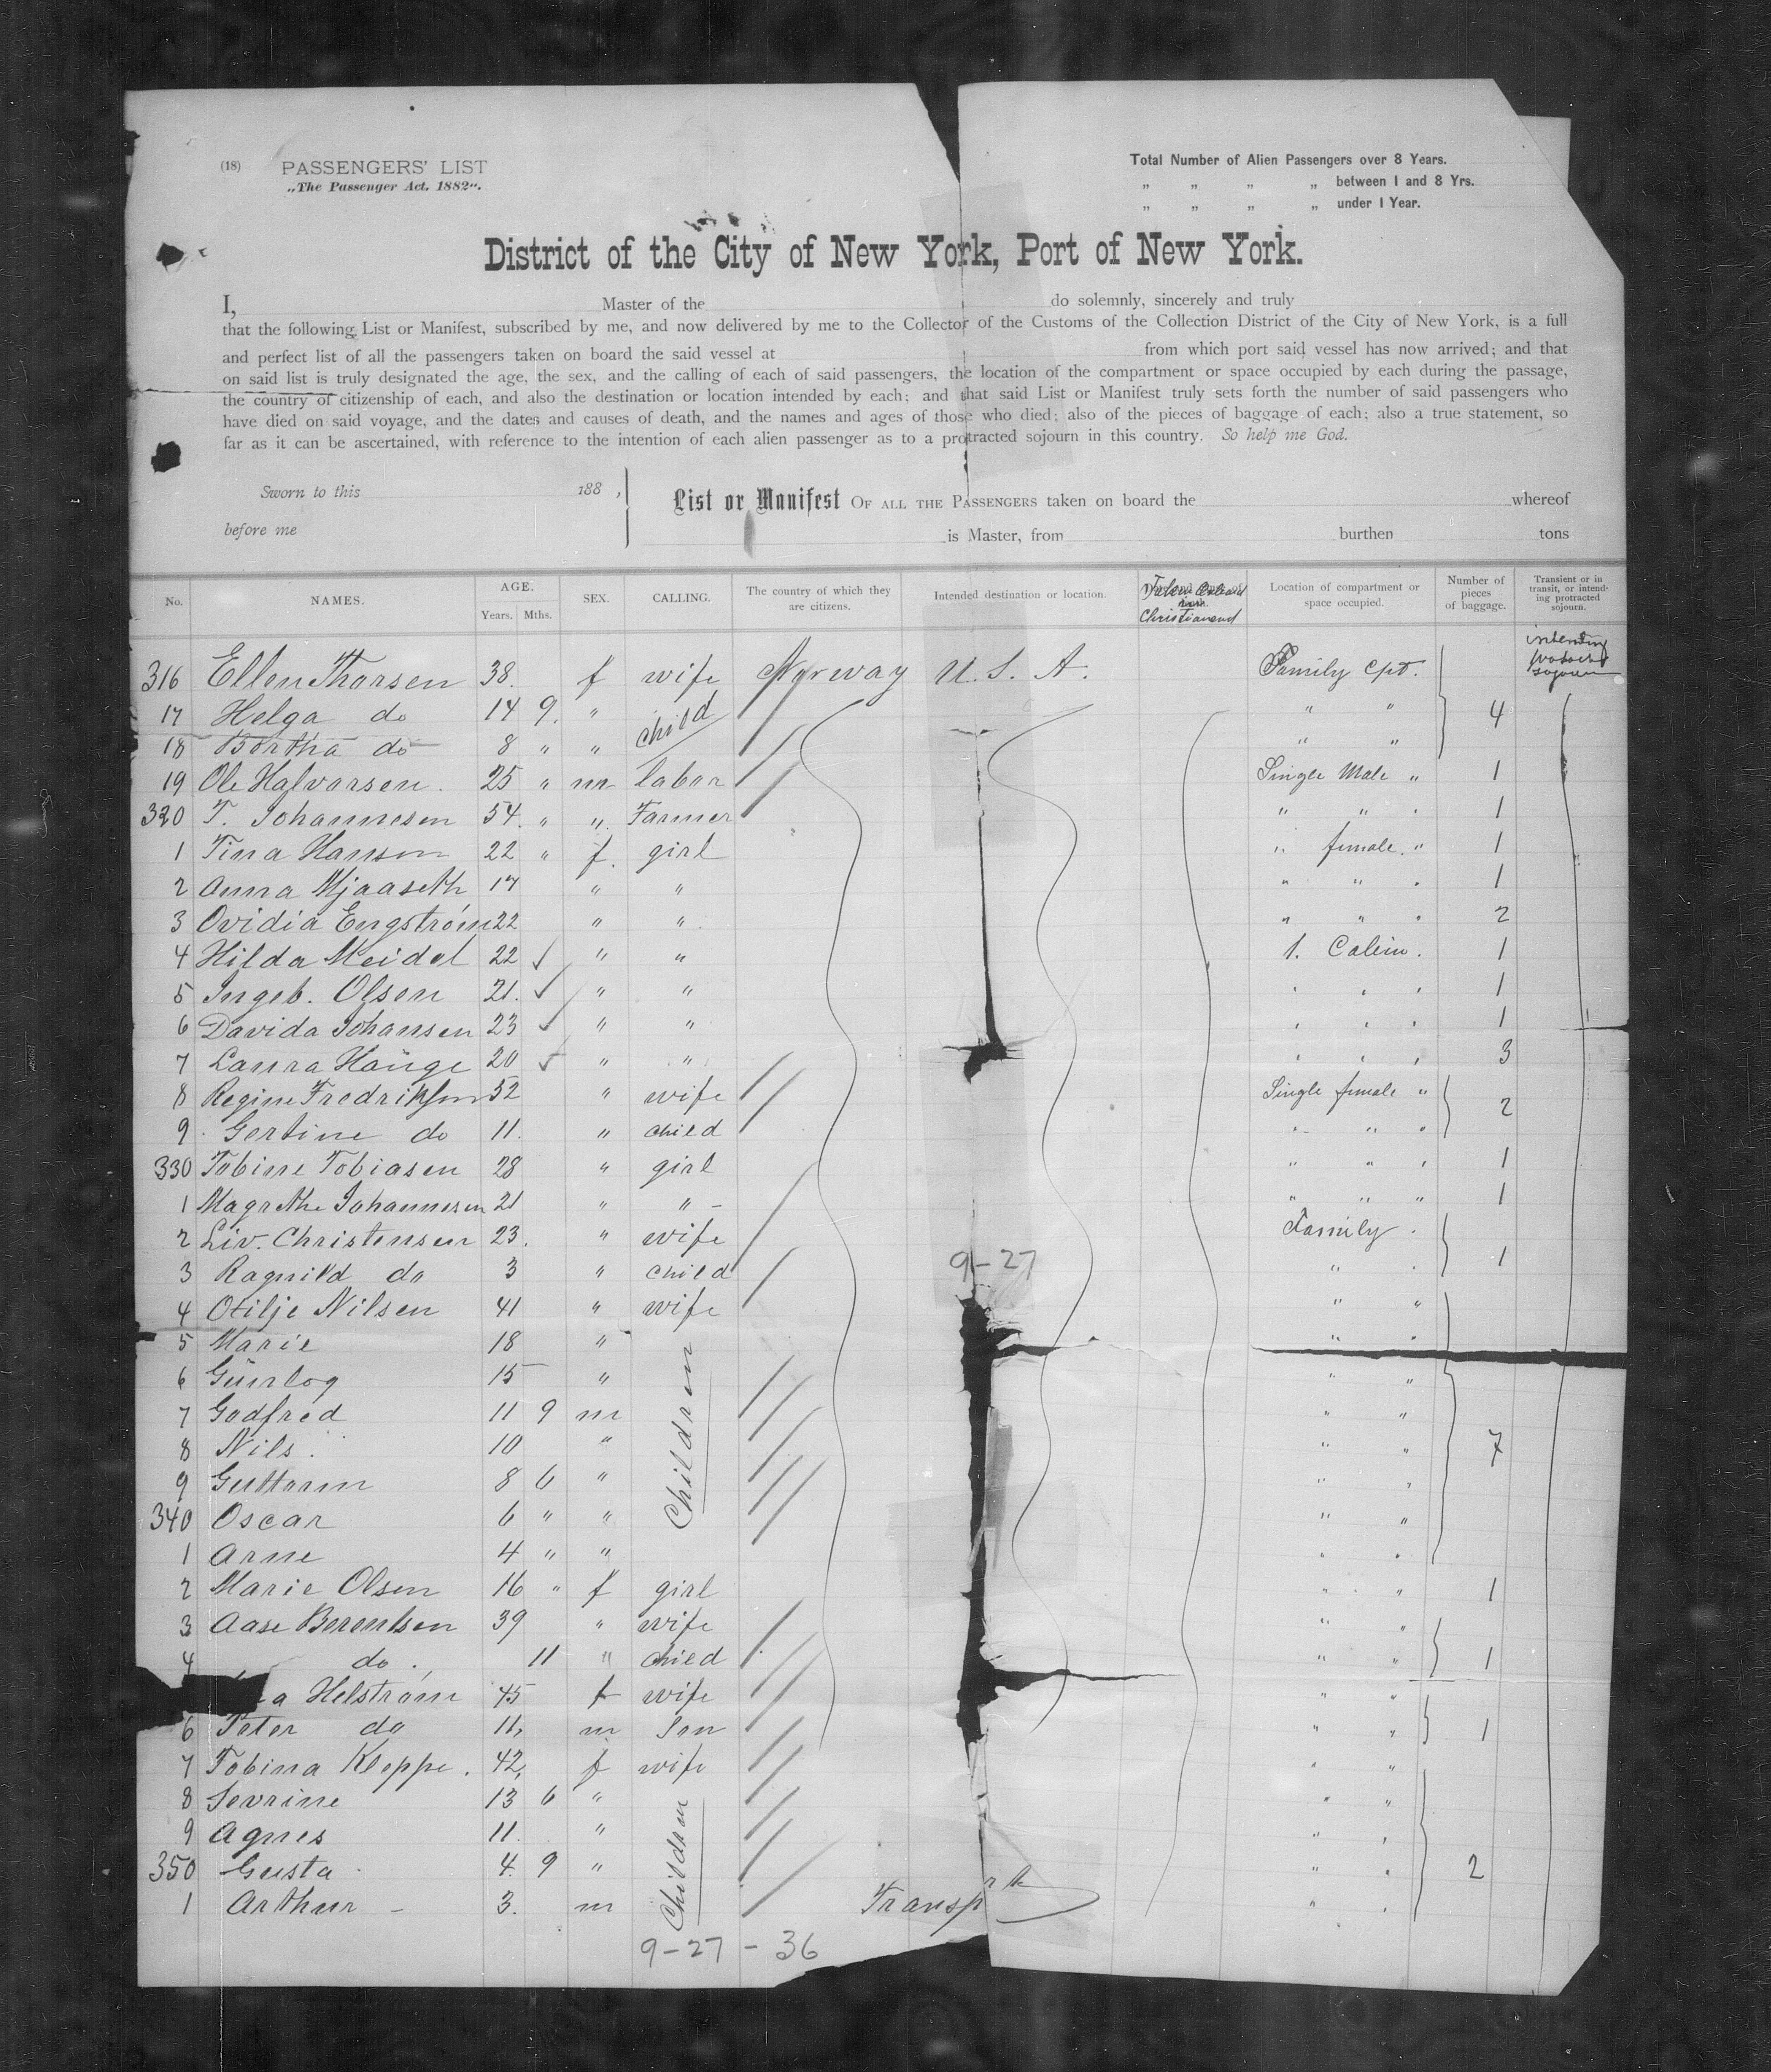 (18) PASSENGERS' LIST
„The Passenger Act, 1882“.
Total Number of Alien Passengers over 8 Years.
„ „ „ „ between 1 and 8 Yrs.
„ „ „ „ under 1 Year.
District of the City of New York, Port of New York.
I, Master of the do solemnly, sincerely and truly
that the following List or Manifest, subscribed by me, and now delivered by me to the Collector of the Customs of the Collection District of the City of New York, is a full
and perfect list of all the passengers taken on board the said vessel at from which port said vessel has now arrived; and that
on said list is truly designated the age, the sex, and the calling of each of said passengers, the location of the compartment or space occupied by each during the passage,
the country of citizenship of each, and also the destination or location intended by each; and that said List or Manifest truly sets forth the number of said passengers who
have died on said voyage, and the dates and causes of death, and the names and ages of those who died; also of the pieces of baggage of each; also a true statement, so
far as it can be ascertained, with reference to the intention of each alien passenger as to a protracted sojourn in this country. So help me God.
Sworn to this 188 ,
before me
List or Manifest OF ALL THE PASSENGERS taken on board the whereof
is Master, from burthen tons
No. NAMES. AGE. Years. Mths. SEX. CALLING. The country of which they are citizens. Intended destination or location. Christiansand Location of compartment or space occupied. Number of pieces of baggage. Transient or in transit, or intending protracted sojourn.
316 Ellen Thorsen 38. f wife Norway U. S. A. Family cpt. intending protracted sojourn
17 Helga do 14 9. " child " " 4
18 Bertha do 8 " " " "
19 Ole Halvorsen. 25 " m labor Single Male " 1
320 T. Johannesen 54. " " Farmer " " " 1
1 Tina Hansen 22 " f. girl " female. " 1
2 Anna Mjaaseth 17 " " " " " 1
3 Ovidia Engström 22 " " " " " 2
4 Hilda Meidel 22 ✓ " " 1. Cabin. 1
5 Ingeb. Olsen 21. ✓ " " " " " 1
6 Davida Johansen 23 ✓ " " " " " 1
7 Laura Haüge 20 ✓ " " " " " 3
8 Regine Fredriksen 52 " wife Single female " 2
9 Gertine do 11. " child " " "
330 Tobine Tobiasen 28 " girl " " " 1
1 Magrethe Johannesen 21 " " - " " " 1
2 Liv. Christensen 23. " wife Family " 1
3 Ragnild do 3 " child " " 9-27
4 Otilje Nilsen 41 " wife " "
5 Marie 18 " " "
6 Günlog 15 " Children " "
7 Godfred 11 9 m " "
8 Nils. 10 " " " 7
9 Guttorm 8 6 " " "
340 Oscar 6 " " " "
1 Arne 4 " " " "
2 Marie Olsen 16 " f girl " " 1
3 Aase Berentsen 39 " wife " "
4 do. 11 " child " " 1
a Helström 45 f wife " "
6 Peter do 11, m Son " " 1
7 Tobina Kleppe. 42, f wife " "
8 Sevrine 13 6 " " "
9 Agnes 11. " Children " "
350 Gusta 4. 9 " " " 2
1 Arthur - 3. m " " Transp
9-27-36